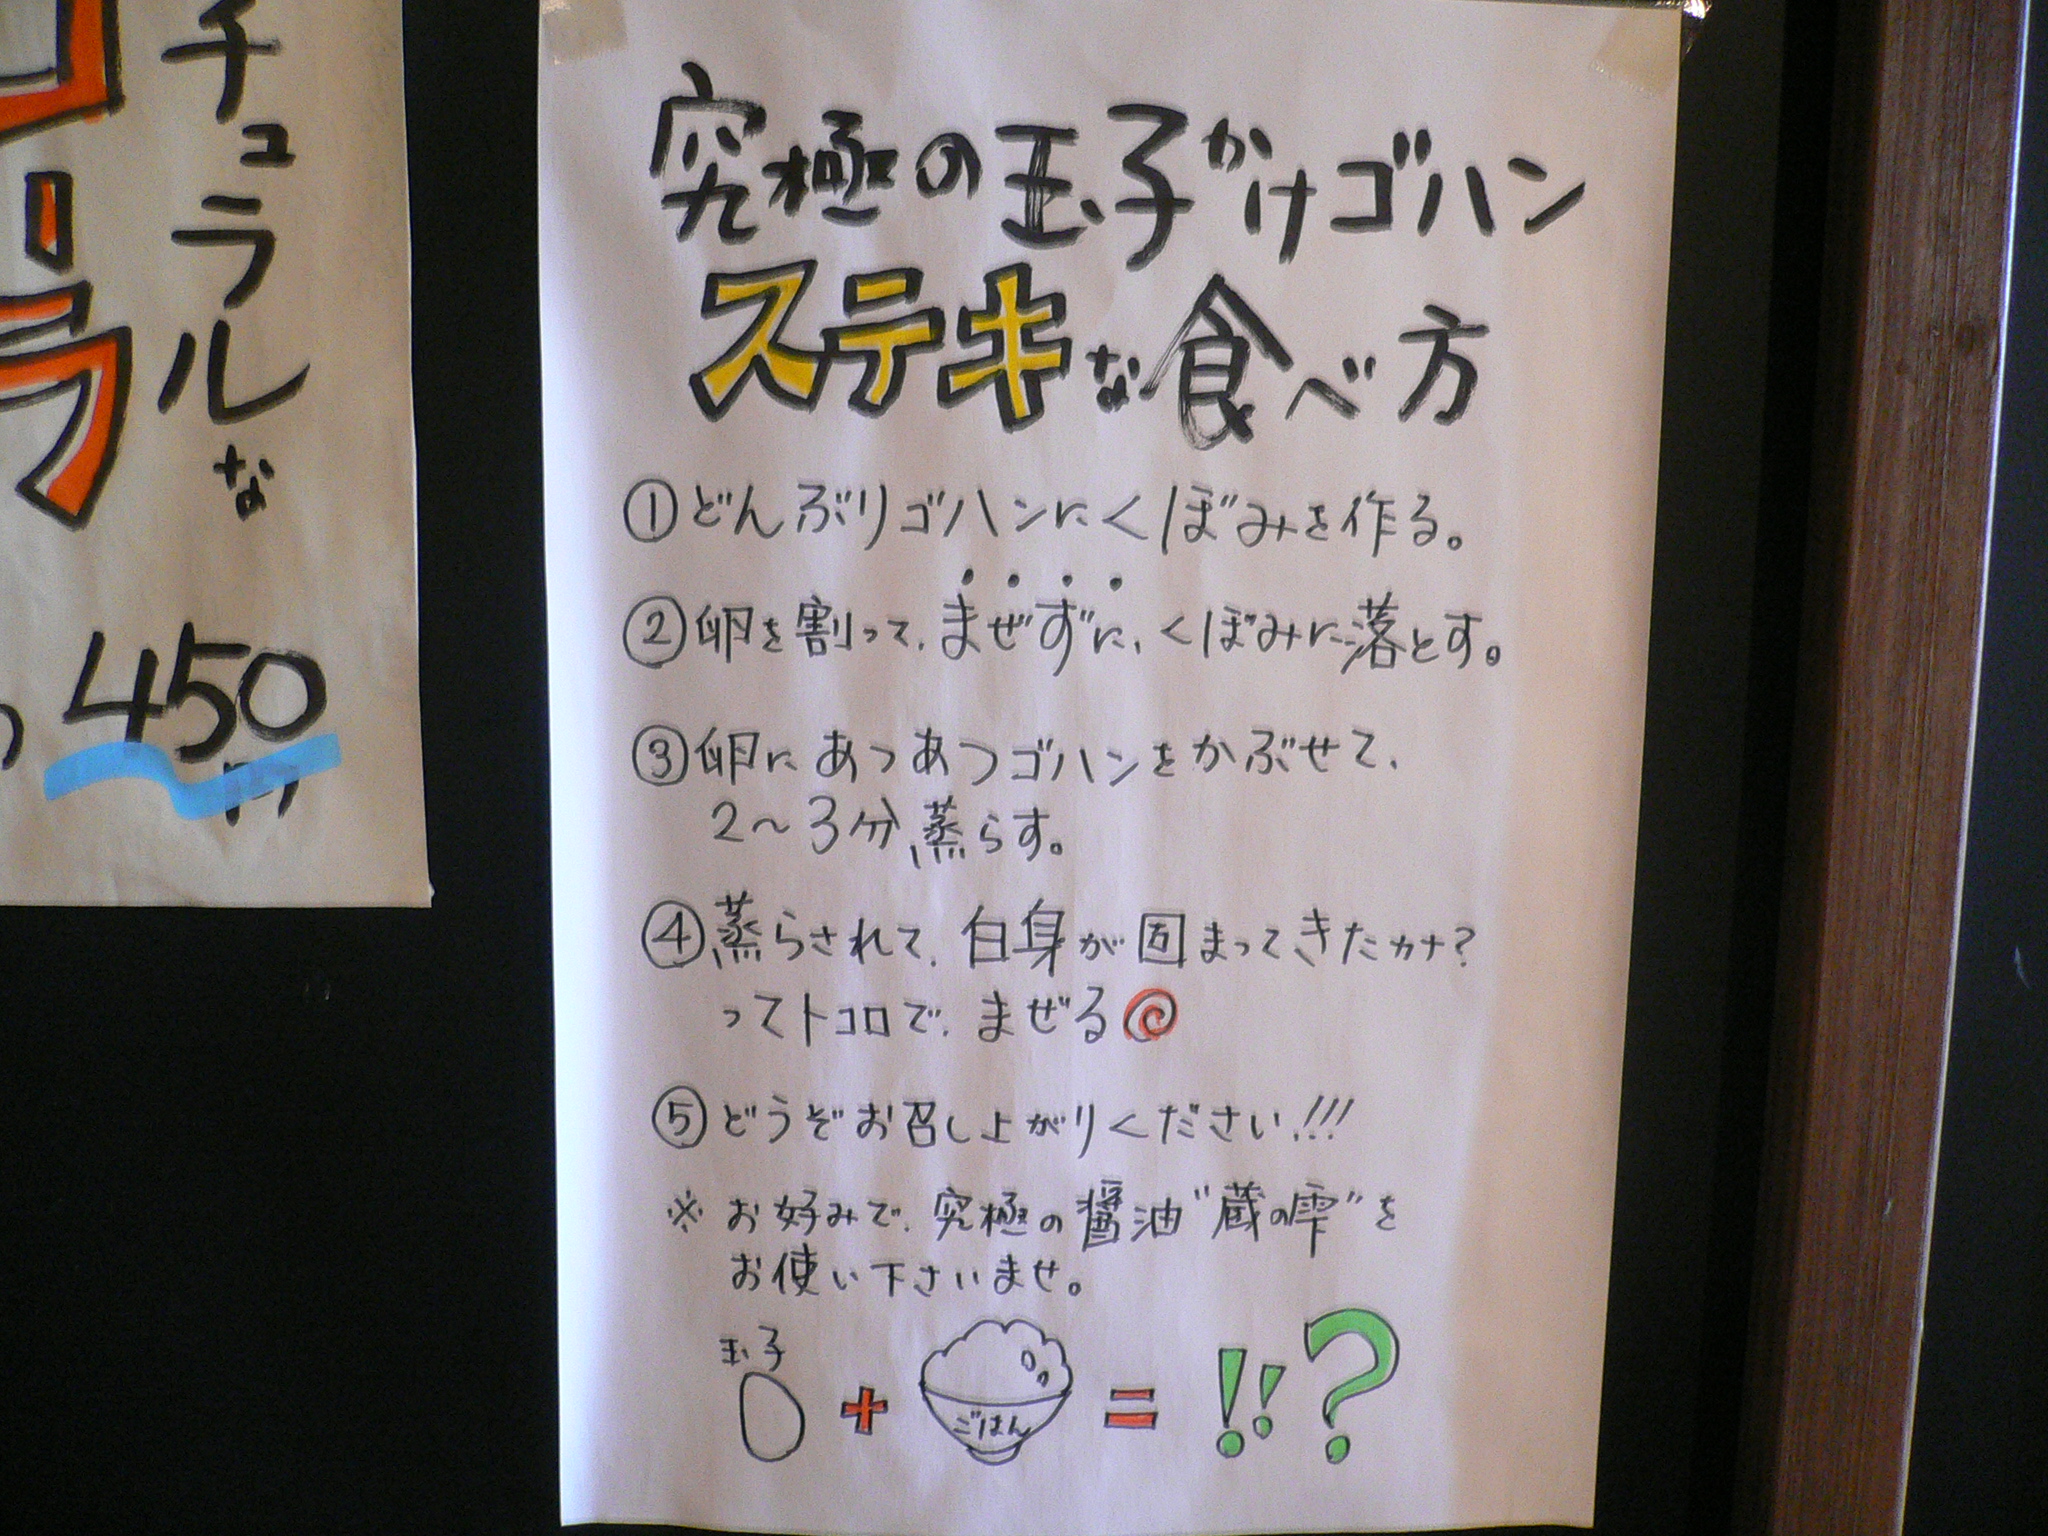 チュラルな
450
円
究極の玉子かけゴハン
ステキな食べ方
①どんぶりゴハンにくぼみを作る。
②卵を割って、まぜずに、くぼみに落とす。
③卵にあつあつゴハンをかぶせて、
2〜3分蒸らす。
④蒸らされて、白身が固まってきたカナ?
ってトコロで、まぜる
⑤どうぞお召し上がりください!!!
※お好みで、究極の醤油"蔵の雫"を
お使い下さいませ。
玉子
+ ごはん = !!?